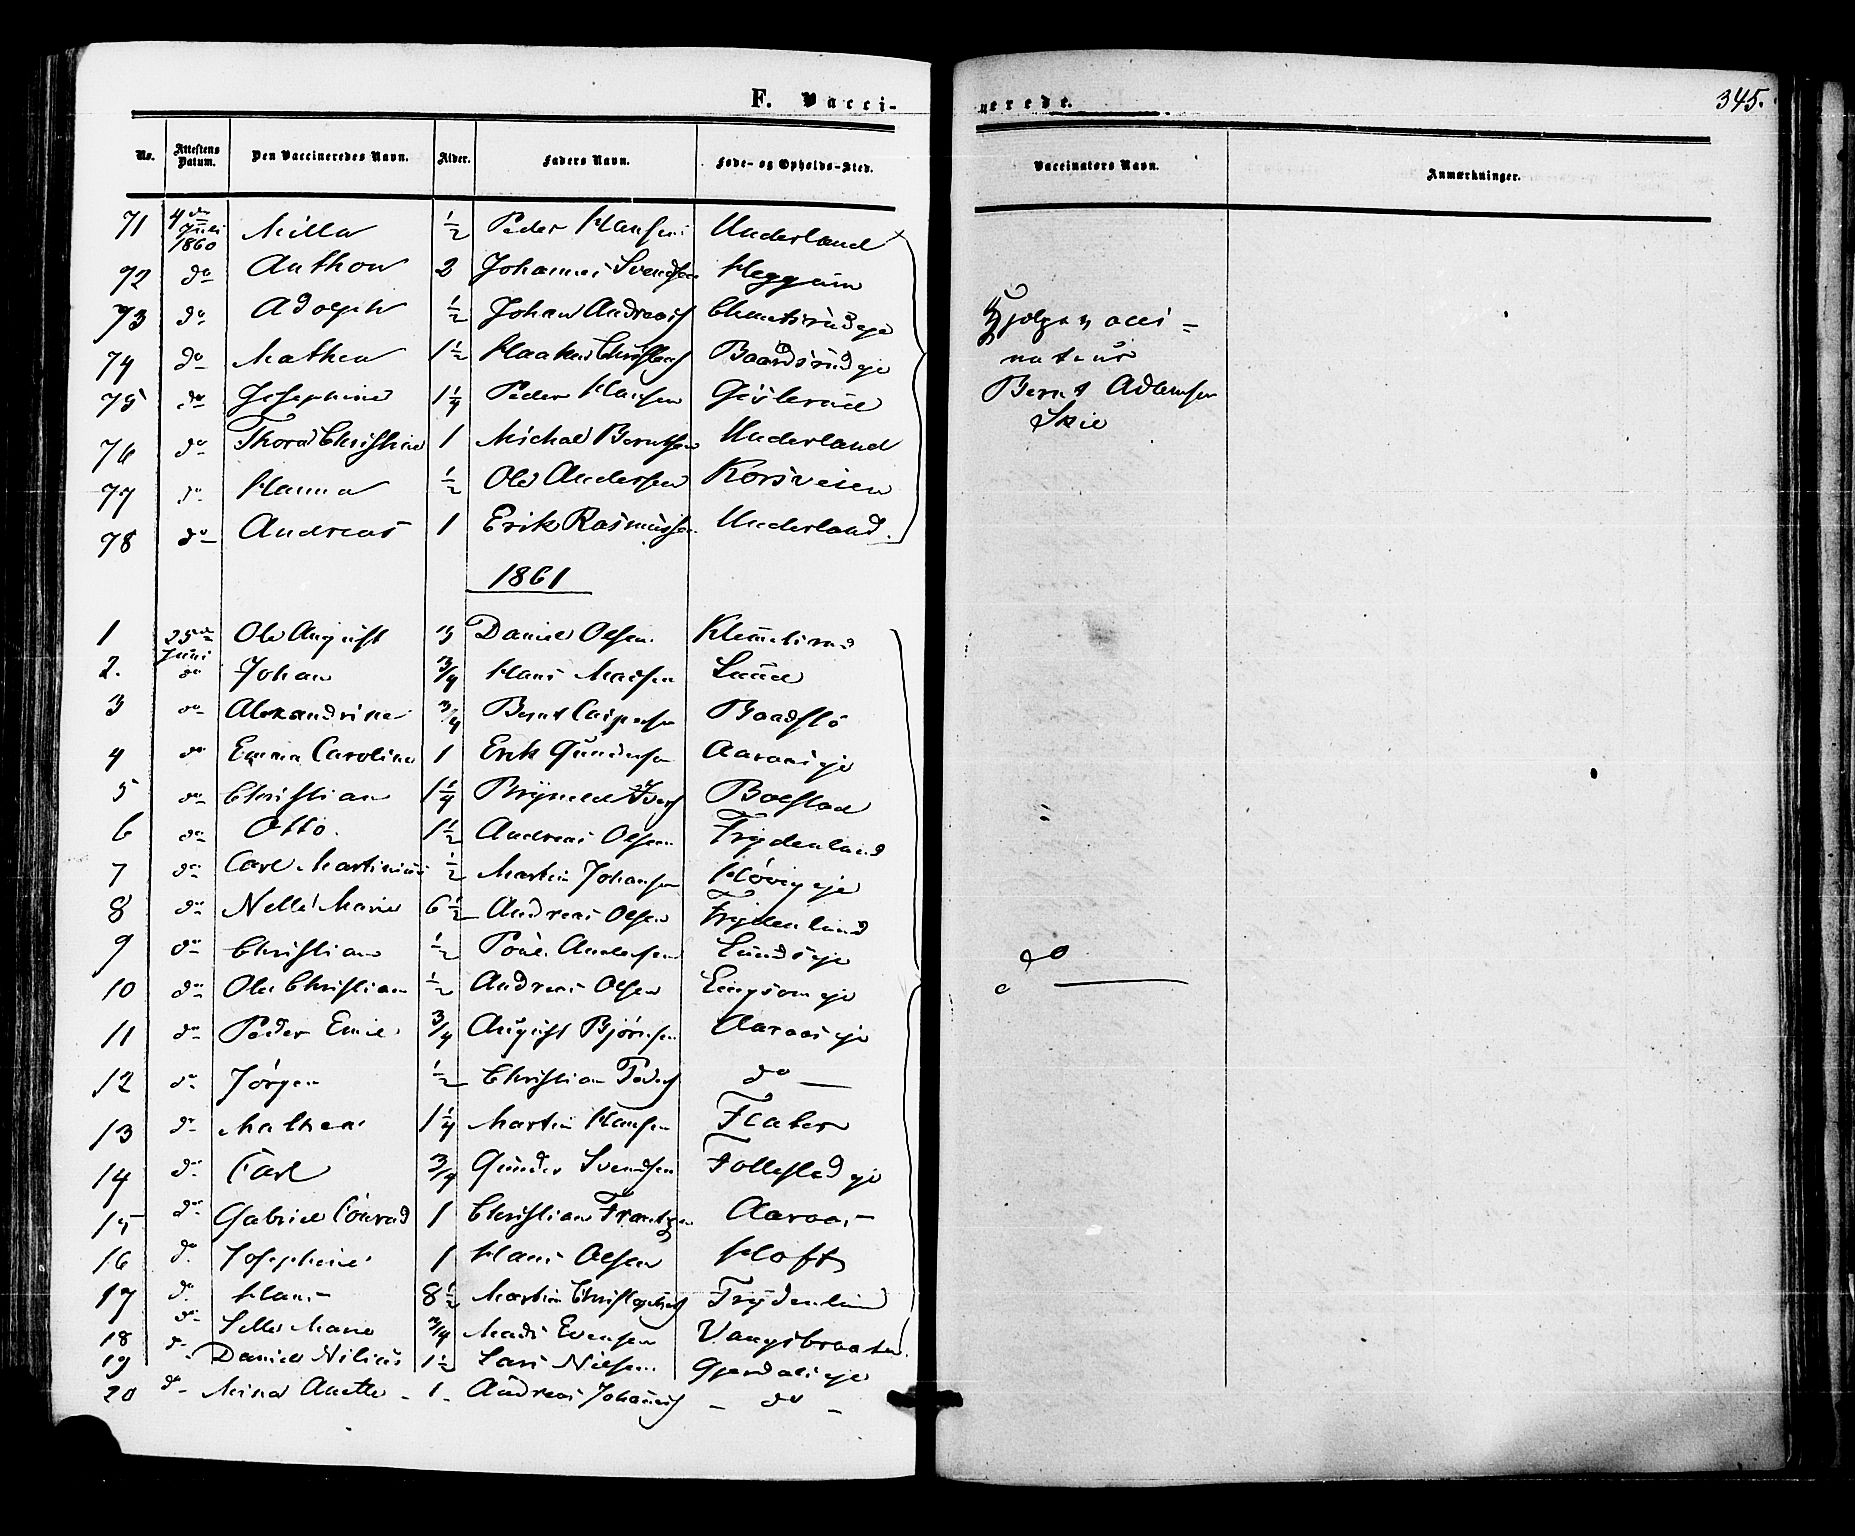 F. Vacci-
nerede.
345.
No. Attestens Datum. Den Vaccineredes Navn. Alder. Faders Navn. Føde- og Opholds-Sted. Vaccinators Navn. Anmærkninger.
71 4de Juli 1860 Milla ½ Peder Hansen Underland
72 do Anthon 2 Johannes Svendsen Heggum
73 do Adolph ½ Johan Andreas
74 do Mathea 1½ Haaken Baardsrudeje
75 do Josephine 1¼ Peder Hansen Gislerud
76 do Thora Christine 1 Michael Berntsen Underland
77 do Hanna ½ Ole Andersen Korsveien
78 do Andreas 1 Erik Rasmussen Underland.
Hjelpevacci-
nateur
Bernt Adamsen
Skie
1861
1 25de Juni Ole August Daniel Olsen Klemetsrud
2. do Johan ¾ Hans Madsen Lund
3 do Alexandrine ¾ Bernt Caspersen Baadslø
4 do Emma Caroline 1 Erik Gundersen Aaraaseje
5 do Christian 1¼ Brynild Ivers Bolstad
6 do Otto. 1½ Andreas Olsen Frydenlund
7 do Carl Martinius ½ Martin Johansen Høvigeje
8 do Nelle Marie 6½ Andreas Olsen Frydenlund
9 do Christian ½ Poul Andersen Lundseje do
10 do Ole Christian ½ Andreas Olsen
11 do Peder Emil ¾ August Bjørnsen Aaraaseje
12 do Jørgen ½ Christian Peders do
13 do Mathea 1¼ Martin Hansen Flater
14 do Carl ¾ Gunder Svendsen Follestadeje
15 do Gabriel Conrad 1 Christian Frantzen Aaraas
16 do Josephine 1 Hans Olsen Hoft
17 do Hans 8½ Martin Christophers Frydenlund
18 do Marie ¾ Mads Evensen Vangsbraaten.
19 do Daniel Nilius 1½ Lars Nilsen Gjerdaleje
20 do Mina Anette 1 Andreas Johannes do